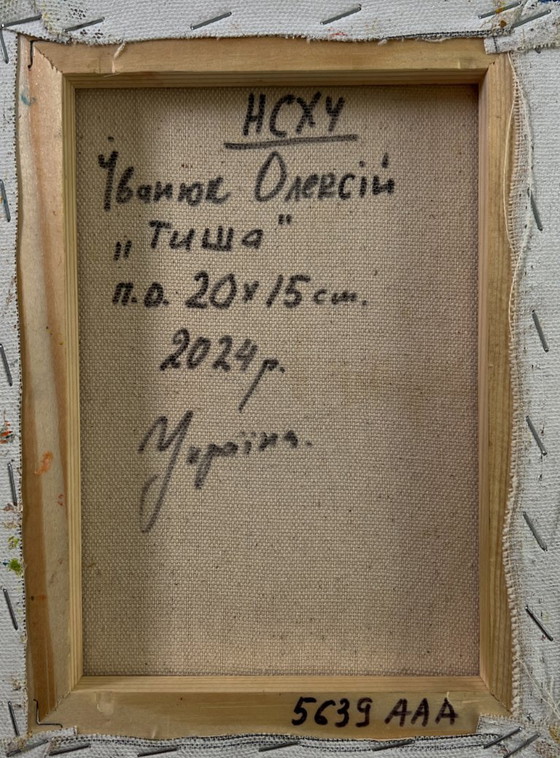 НСХУ
Іванюк Олексій
„Тиша"
п.о. 20х15 см.
2024 р.
Україна.
5639 AAA